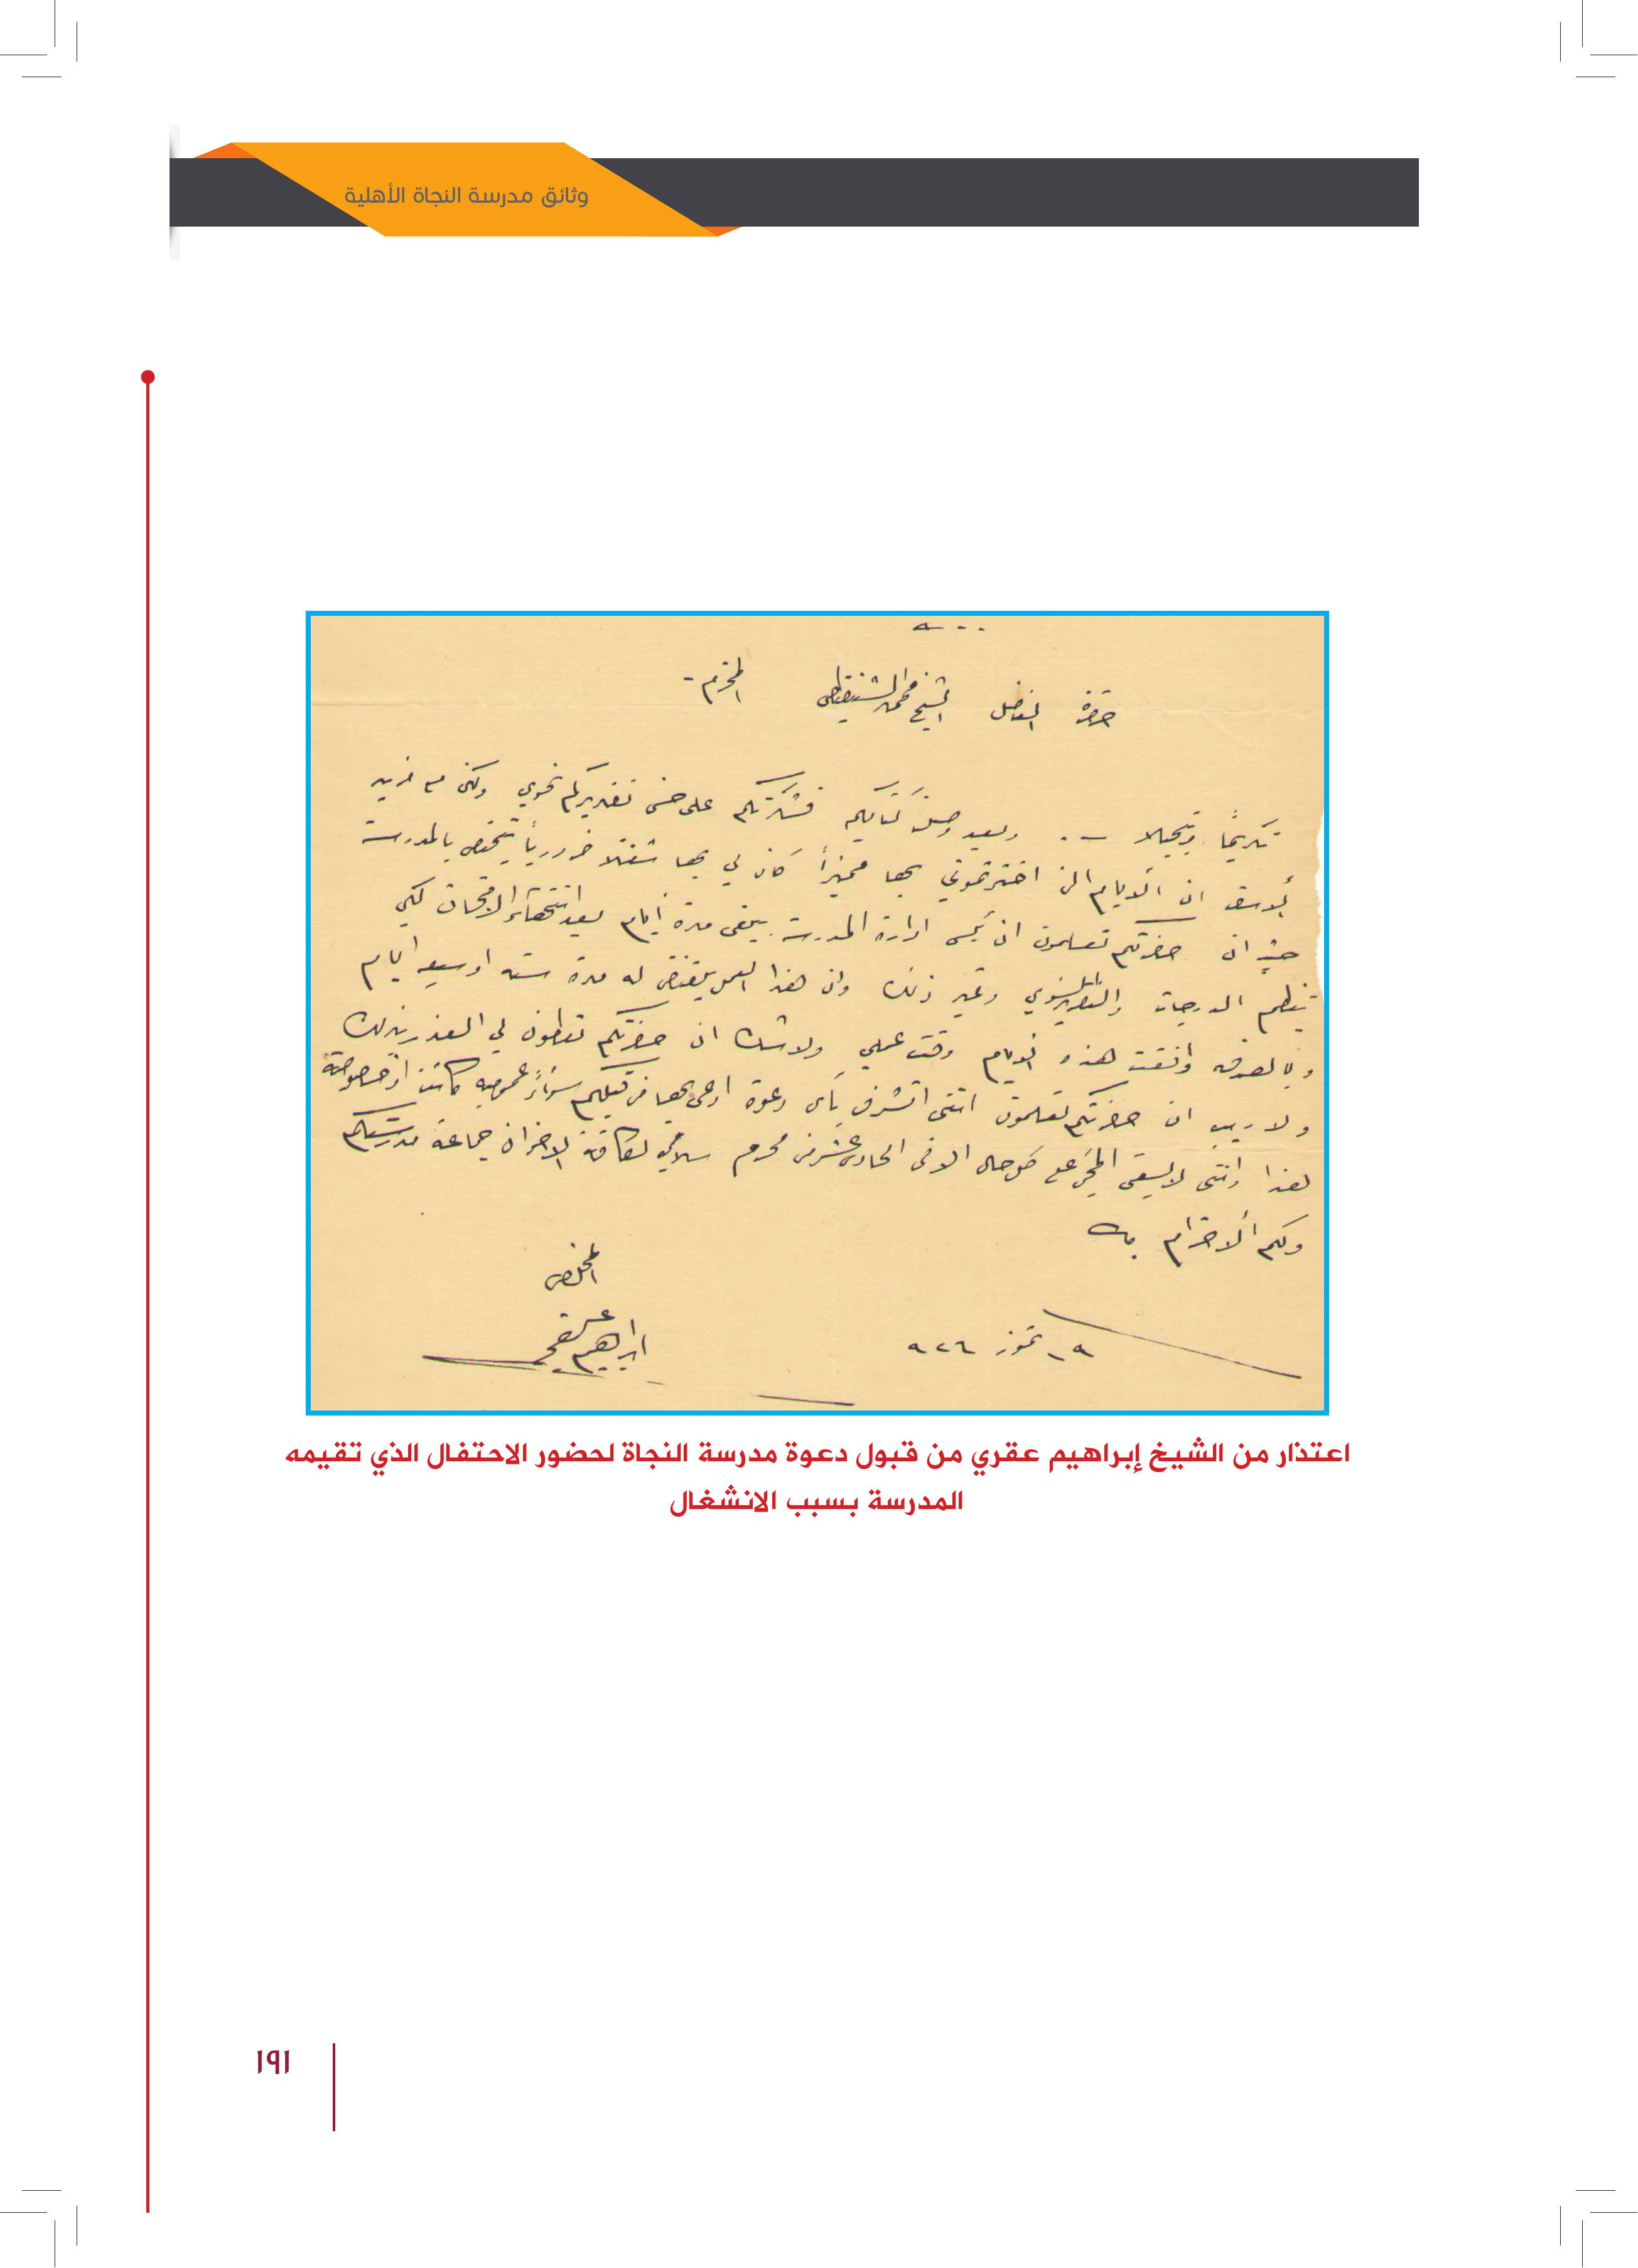 وثائق مدرسة النجاة الأهلية
حضرة الفاضل الشيخ محمد الشنقيطي المحترم -
تكريماً وتبجيلا -٠ وبعد وصلني كتابكم فشكرتكم على حسن تقديركم نحوي ولكن مع مزيد
الاسف ان الايام التي اخترتموني بها كان لي بها شغلا ضرورياً يختص بالمدرسة
حيث ان حضرتكم تعلمون ان رئيس ادارة المدرسة يبقى مدة أيام بعد انتهاء الامتحان لكي
ينظم الدرجات والتقرير السنوي وغير ذلك وان هذا العمل يقتضي له مدة سته او سبعه ايام
وبالصدفه وافقت هذه الايام وقت عملي ولا شك ان حضرتكم تعطون لي العذر بذلك
ولا ريب ان حضرتكم تعلمون انني اتشرف بأي دعوة ادعى بها من قبلكم سواءً عموميه كانت او خصوصية
هذا وانني لا يسعني المجئ على كل حال الا في الحادي عشر من محرم سلامي لكافة الاخوان جماعة مدرستكم
ولكم الاحترام
المخلص
ابراهيم
١٩ تموز ٩٢٦
اعتذار من الشيخ إبراهيم عقري من قبول دعوة مدرسة النجاة لحضور الاحتفال الذي تقيمه
المدرسة بسبب الانشغال
١٩١